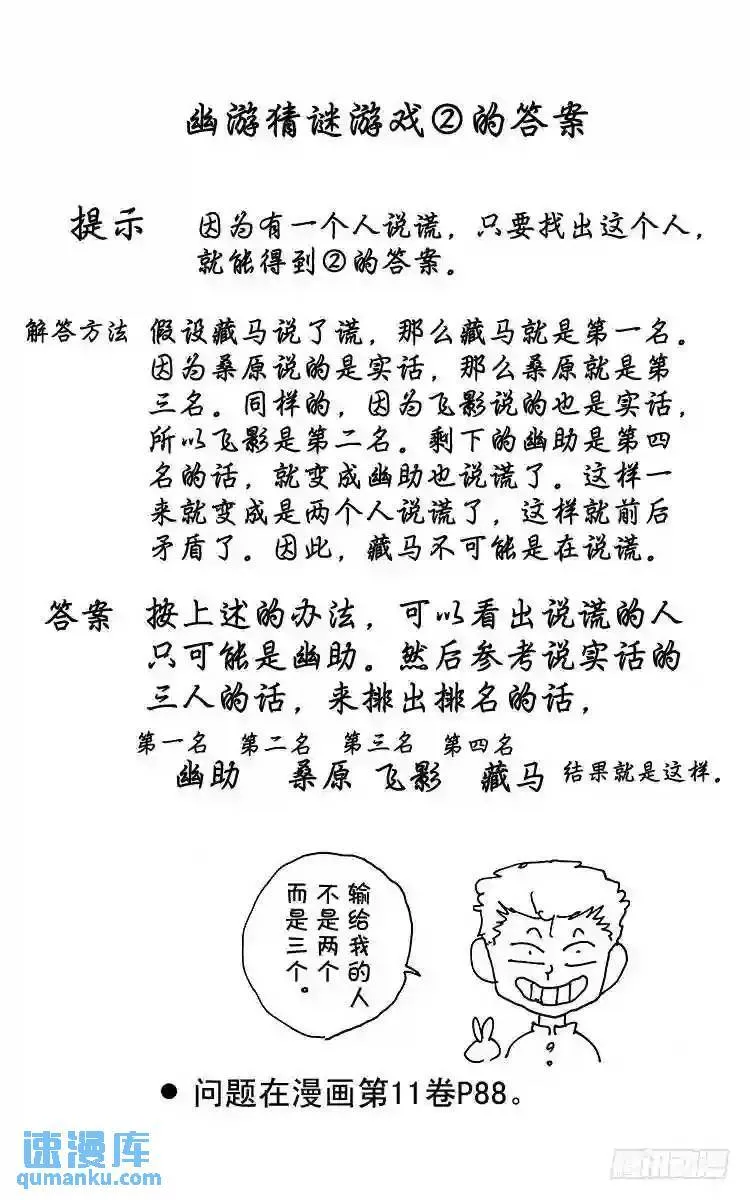 幽游猜谜游戏②的答案
提示
因为有一个人说谎，只要找出这个人，
就能得到②的答案。
解答方法
假设藏马说了谎，那么藏马就是第一名。
因为桑原说的是实话，那么桑原就是第
三名。同样的，因为飞影说的也是实话，
所以飞影是第二名。剩下的幽助是第四
名的话，就变成幽助也说谎了。这样一
来就变成是两个人说谎了，这样就前后
矛盾了。因此，藏马不可能是在说谎。
答案
按上述的办法，可以看出说谎的人
只可能是幽助。然后参考说实话的
三人的话，来排出排名的话，
第一名 第二名 第三名 第四名
幽助 桑原 飞影 藏马 结果就是这样。
输给我的人
不是两个
而是三个。
● 问题在漫画第11卷P88。
速漫库
qumanku.com
腾讯动漫